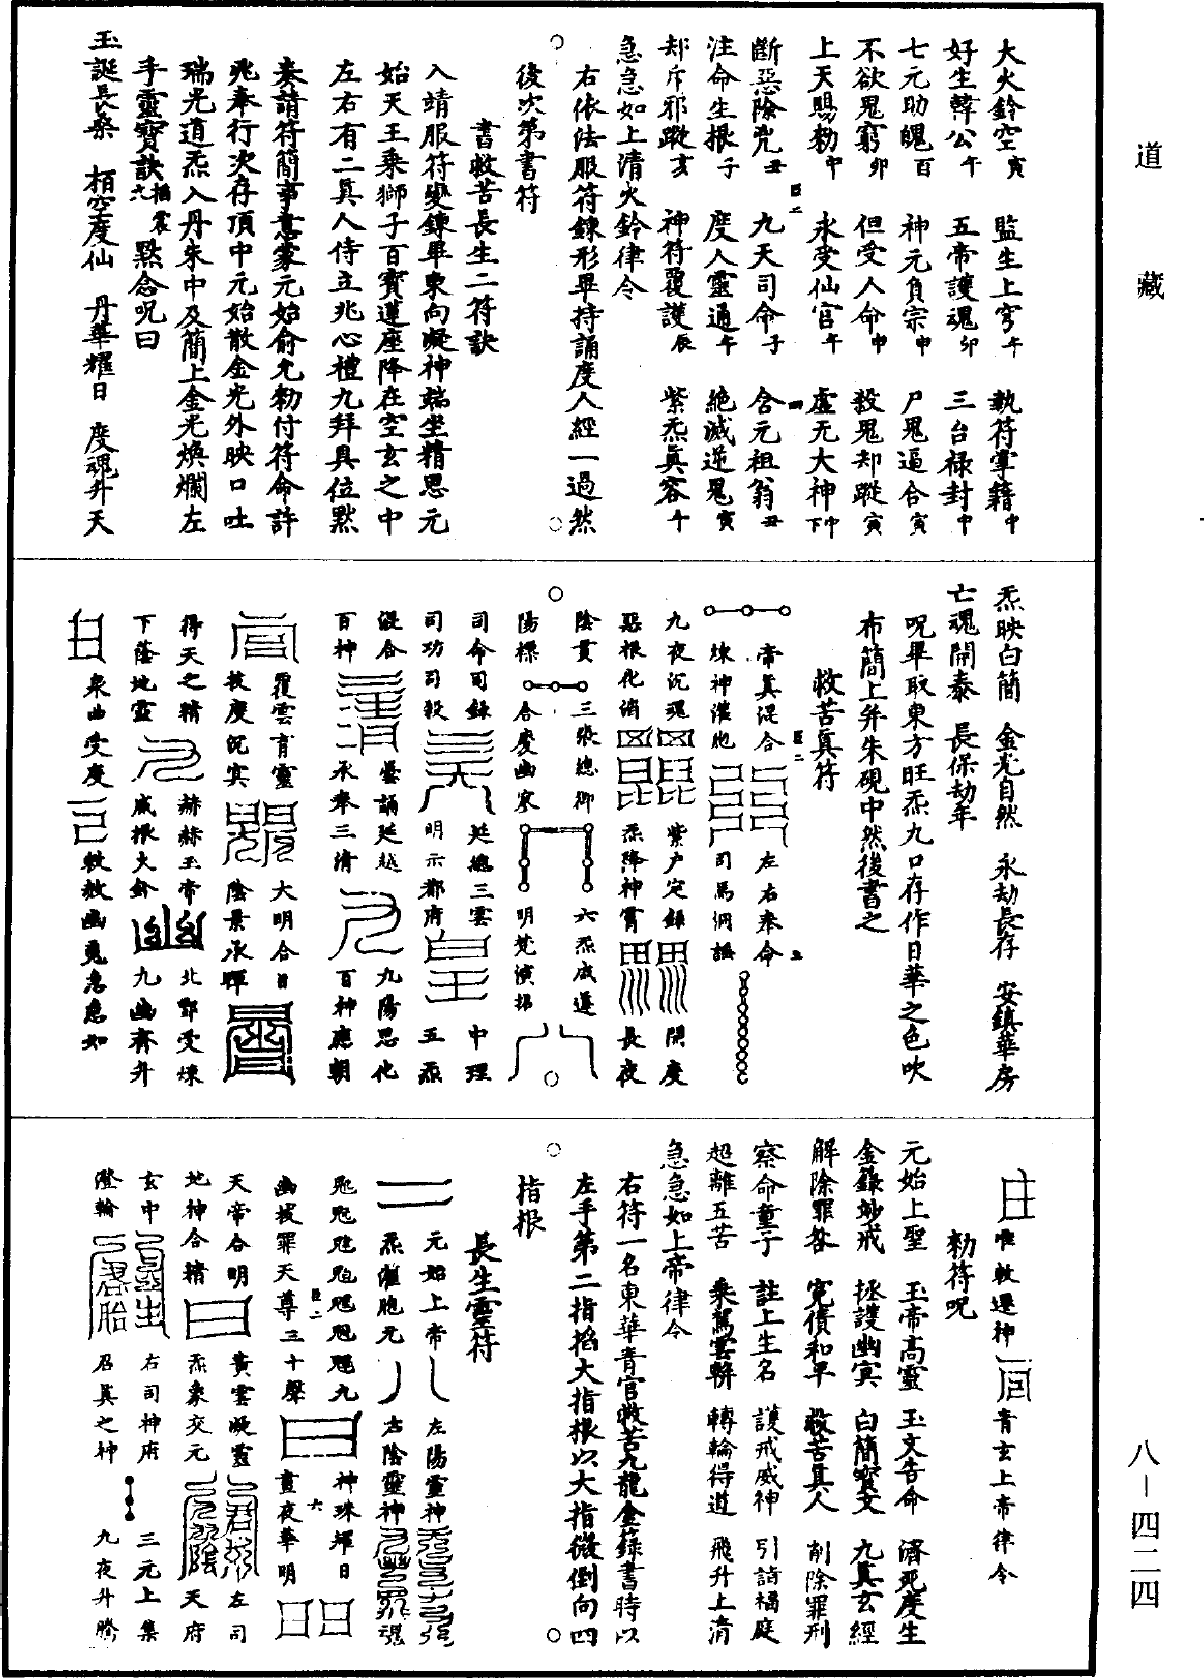 道藏
大火鈴空寅 監生上穹午 執符掌籍中
好生韓公午 五帝護魂卯 三台祿封中
七元助魄酉 神元負宗申 尸鬼逼合寅
不欲鬼窮卯 但受人命申 殺鬼却蹤寅
上天賜勑中 永受仙官午 虛无大神
斷惡除兇丑 九天司命子 含元祖翁丑
注命生根子 度人靈通午 絶滅逆鬼寅
却斥邪蹤亥 神符覆護辰 紫炁真容午
急急如上清火鈴律令
右依法服符鍊形畢持誦度人經一過然
後次第書符
書救苦長生二符訣
入靖服符變鍊畢東向凝神端坐精思元
始天王乘獅子百寶蓮座降在空玄之中
左右有二真人侍立兆心禮九拜具位默
奏請符簡事意蒙元始俞允勑付符命許
兆奉行次存頂中元始散金光外映口吐
瑞光道炁入丹朱中及簡上金光煥爛左
手靈寶訣 默念呪曰
玉誕長桑 栢空度仙 丹華耀日 度魂升天
炁映白簡 金光自然 永劫長存 安鎮華房
亡魂開泰 長保劫年
呪畢取東方旺炁九口存作日華之色吹
布簡上并朱硯中然後書之
救苦真符
帝真混合 左右奉命
煉神濯胞 司馬洞謡
九夜沉魂 紫户定錄 開度
惡根化消 炁降神霄 長夜
陰貫 三張總御 六炁成運
陽標 合慶幽寥 明梵演招
司命司錄 延總三雲 中理
司功司殺 明示都府 五炁
混合 曇誦延越 九陽思化
百神 承奉三清 百神應朝
覆雲育靈 大明合日
披度沉冥 陰景承暉
得天之精 赫赫玉帝 北酆受煉
下蔭地靈 威振火鈴 九幽齊升
衆曲受度 敕救幽冤急急如
唯敕還神 青玄上帝律令
勑符呪
元始上聖 玉帝高靈 玉文告命 濟死度生
金籙妙戒 拯護幽冥 白簡寶文 九真玄經
解除罪咎 寃債和平 救苦真人 削除罪刑
察命童子 註上生名 護戒威神 引詣福庭
超離五苦 乘駕雲輧 轉輪得道 飛升上清
急急如上帝律令
右符一名東華青官救苦九龍金籙書時以
左手第二指掐大指根以大指微倒向四
指根
長生靈符
元始上帝 左陽靈神
炁催胞元 右陰靈神
九 神珠耀日
幽披罪天尊三十聲 晝夜華明
天帝合明 黄雲凝靈 左司
地神合精 炁象交元 天府
玄中 右司神府 三元上集
澄輪 召真之神 九夜升騰
八－四二四